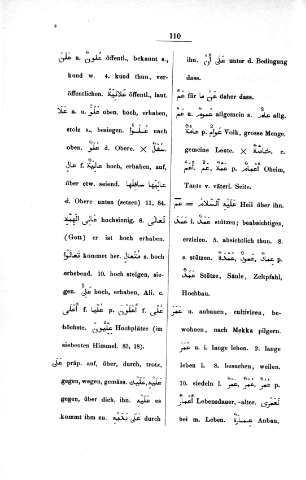 110
عَلَنَ a. عُلُونٌ öffentl., bekannt s.,
kund w. 4. kund thun, ver-
öffentlichen. عَلَانِيَةً öffentl., laut.
عَلَا a. u. عُلُوٌّ oben, hoch, erhaben,
stolz s., besiegen. عُلُوًّا nach
oben. d. Obere.
عَالٍ f. عَالِيَةٌ hoch, erhaben, auf,
über etw. seiend. عَالِيَهَا سَافِلَهَا
d. Obere unten (setzen) 11, 84.
hochsinnig. 6. تَعَالَى
(Gott) er ist hoch erhaben.
تَعَالَوْا kommet her. مُتَعَالٍ s. hoch
erhebend. 10. hoch steigen, sie-
gen. عَلِيٌّ hoch, erhaben, Ali. c.
أَعْلَى f. عُلْيَا p. أَعْلَوْنَ f. عُلًى
höchste. عِلِّيُّونَ Hochplätze (im
siebenten Himmel. 83, 18).
عَلَى präp. auf, über, durch, trotz,
gegen, wegen, gemäss. عَلَيْهِ، عَلَيْكَ
gegen, über dich, ihn. عَلَيْهِ es
kommt ihm zu. durch
ihn. عَلَى أَنْ unter d. Bedingung
dass.
عَمَّ für عَنْ مَا daher dass.
عَمَّ a. عُمُومٌ allgemein s. عَامٌّ allg.
p. Volk, grosse Menge.
gemeine Leute.
عَمٌّ p. أَعْمَامٌ Oheim,
Tante v. väterl. Seite.
عَمْ = عَلَيْهِ السَّلَامُ Heil über ihn.
عَمَدَ i. عَمْدٌ stützen; beabsichtigen,
erzielen. 5. absichtlich thun. 8.
s. stützen.
Stütze, Säule, Zeltpfahl,
Hochbau.
عَمَرَ u. anbauen, cultiviren, be-
wohnen, nach Mekka pilgern.
عَمَرَ u. i. lange leben. 2. lange
leben l. 8. besuchen, weilen.
10. siedeln l. p.
أَعْمَارٌ Lebensdauer, -alter.
bei m. Leben. عِمَارَةٌ Anbau,